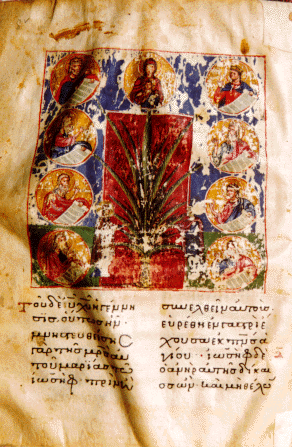 Τοῦ δὲ ιυ χυ ἡ γέννη
σις οὕτως ἦν·
μνηστευθείσης
γὰρ τῆς μρς αὐ
τοῦ μαρίας τῷ
ἰωσὴφ πρὶν ἢ
συνελθεῖν αὐτοὺς
εὑρέθη ἐν γαστρὶ ἔ
χουσα ἐκ πνς ἁ
γίου· ἰωσὴφ δὲ
ὁ ἀνὴρ αὐτῆς δίκαι
ος ὢν καὶ μὴ θέλω